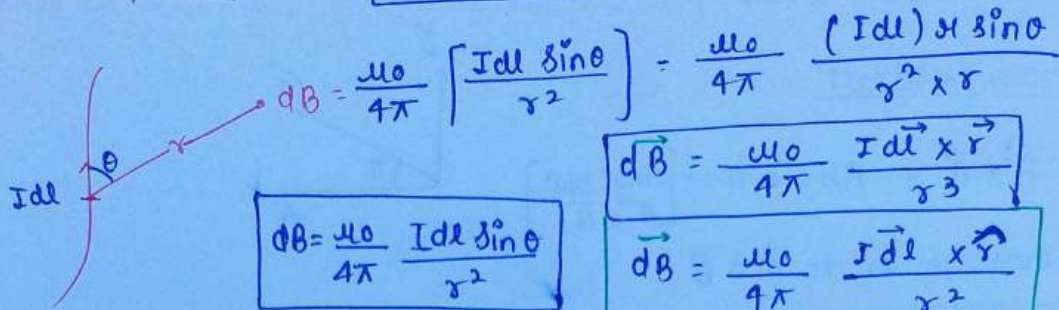 dB = μ0/4π [Idl sinθ / r²] = μ0/4π (Idl) r sinθ / r² × r
r
θ
Idl
dB = μ0/4π Idl sinθ / r²
d⃗B = μ0/4π Id⃗l × r⃗ / r³
d⃗B = μ0/4π Id⃗l × r̂ / r²